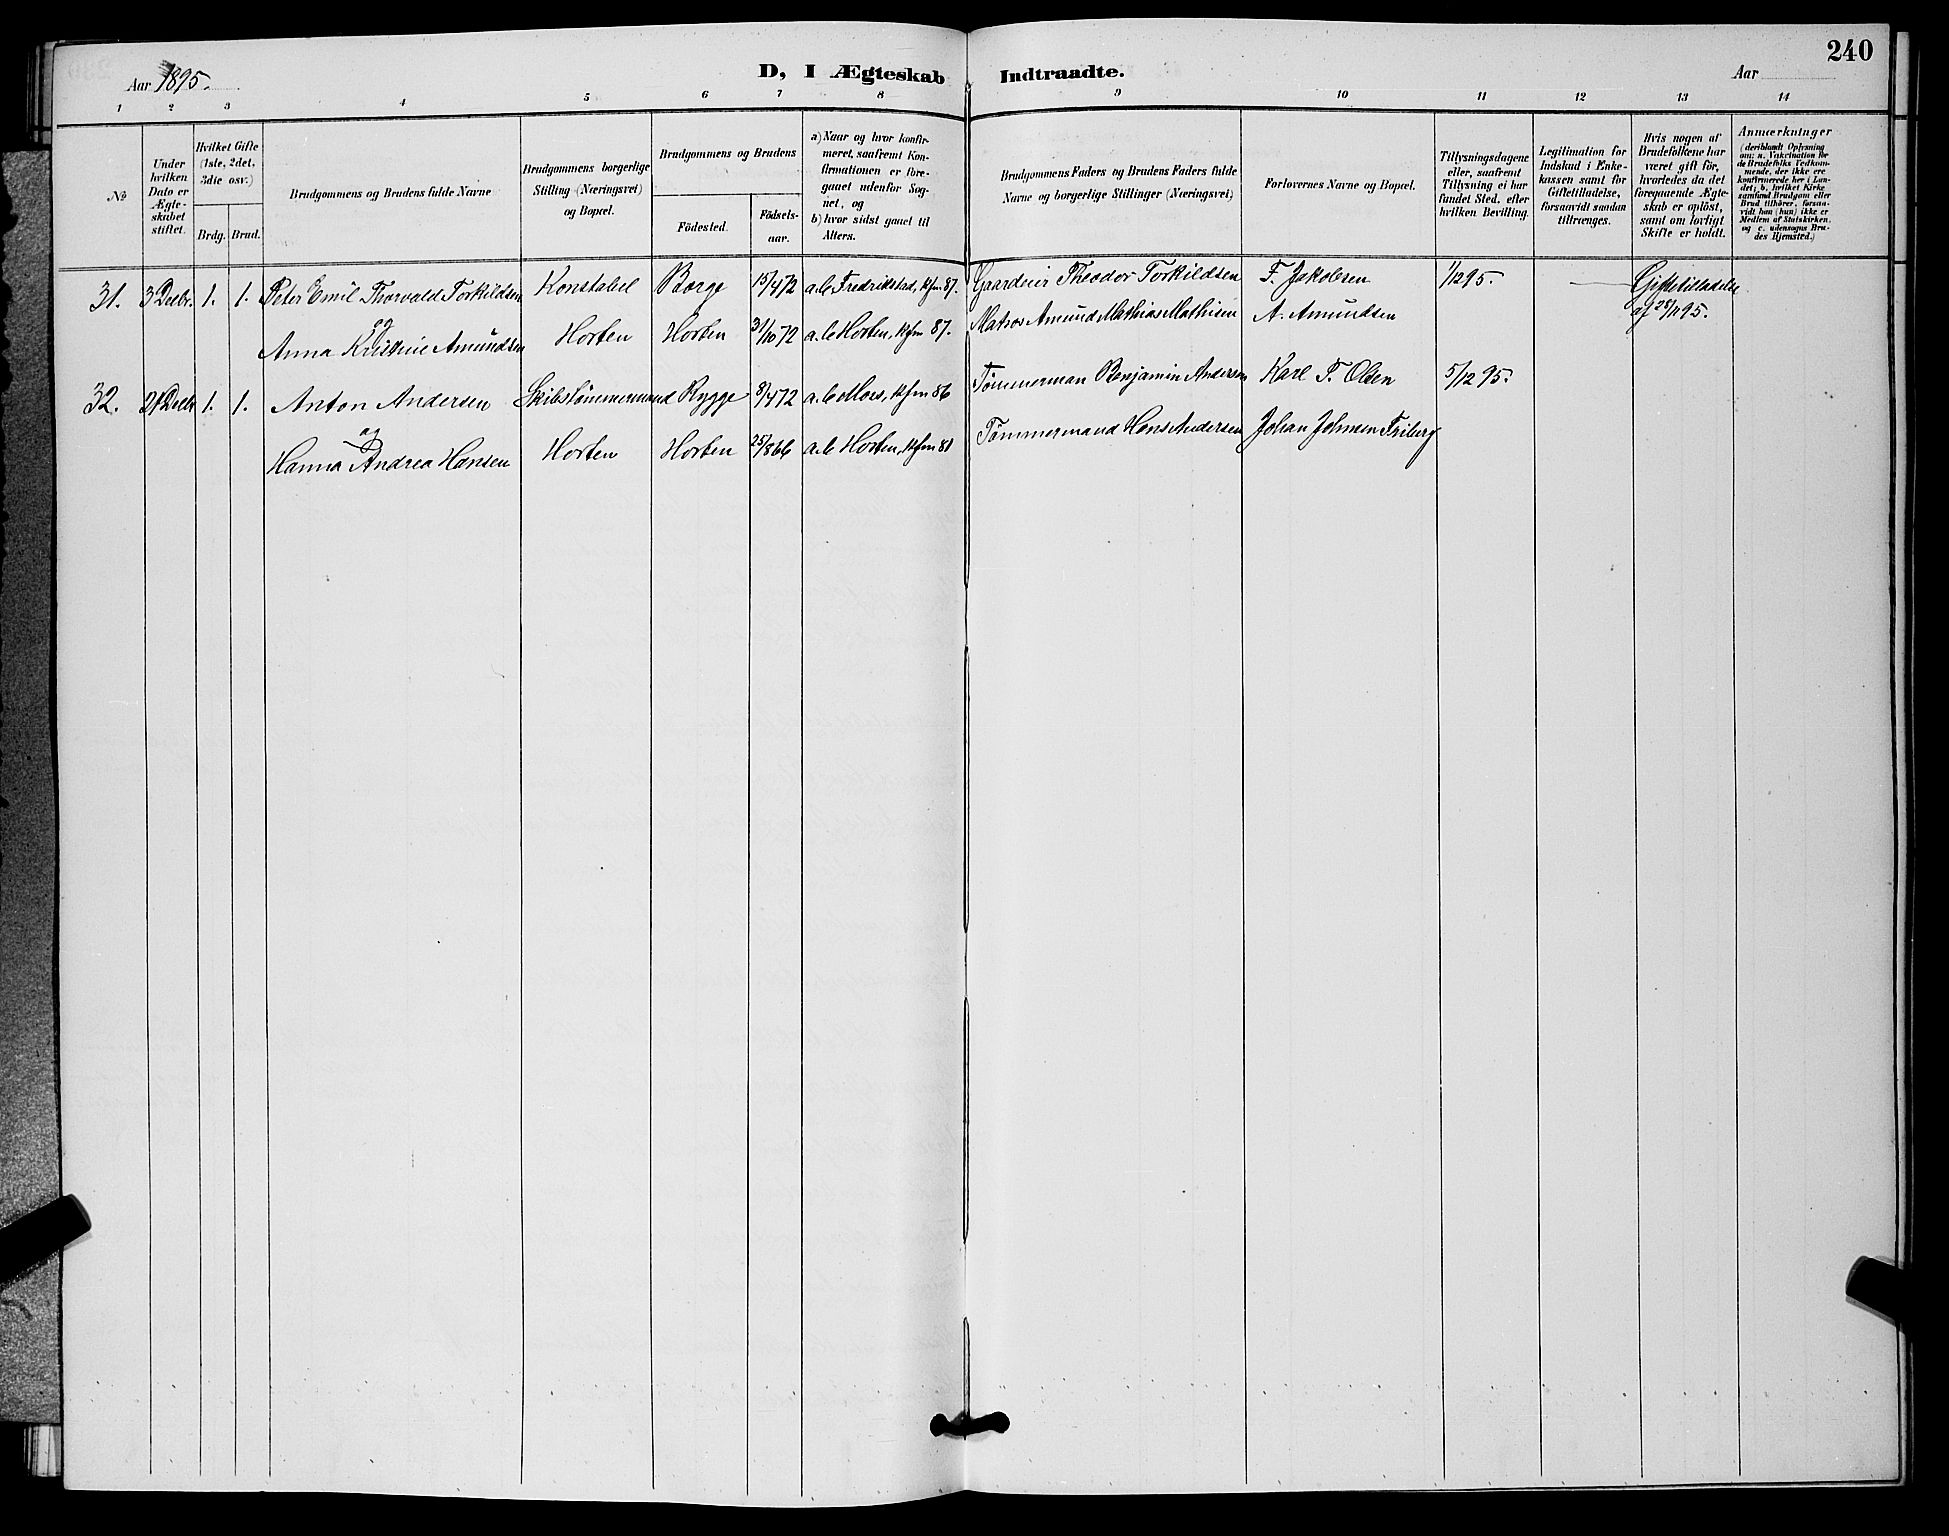 240
Aar 1895.
D, I Ægteskab Indtraadte.
Aar
1 2 3 4 5 6 7 8 9 10 11 12 13 14
No
Under hvilken Dato er Ægte-skabet stiftet.
Hvilket Gifte (1ste, 2det, 3die osv.)
Brdg. Brud.
Brudgommens og Brudens fulde Navne
Brudgommens borgerlige Stilling (Næringsvei) og Bopæl.
Brudgommens og Brudens
Födested.
Födsels-aar.
a) Naar og hvor konfir-meret, saafremt Kon-firmationen er fore-gaaet udenfor Sog-net, og
b) hvor sidst gaaet til Alters.
Brudgommens Faders og Brudens Faders fulde Navne og borgerlige Stillinger (Næringsvei)
Forlovernes Navne og Bopæl.
Tillysningsdagene eller, saafremt Tillysning ei har fundet Sted, efter hvilken Bevilling.
Legitimation for Indskud i Enke-kassen samt for Giftetilladelse, forsaavidt saadan tiltrænges.
Hvis nogen af Brudefolkene har været gift för, hvorledes da det foregaaende Ægte-skab er oplöst, samt om lovligt Skifte er holdt.
Anmærkninger (deriblandt Oplysning om: a. Vakcination for de Brudefolks Vedkom-mende, der ikke ere konfirmerede her i Lan-det; b. hvilket Kirke samfund Brudgom eller Brud tilhörer, forsaa-vidt han (hun) ikke er Medlem af Statskirken, og c. udensogns Bru-des Hjemsted.)
31. 3 Decbr. 1. 1. Peter Emil Thorvald Torkildsen Konstabel Borge 15/4 72 a.b Fredrikstad, kfm 87. Gaardeier Theodor Torkildsen F. Jakobsen 1/12 95. — Giftetilladelse
og
Anna Kristine Amundsen Horten Horten 31/10 72 a.b Horten, kfm 87. Matros Amund Mathias Mathisen A. Amundsen af 28/11 95.
32. 21 Decbr 1. 1. Anton Andersen Skibstömmermand Rygge 8/4 72 a.b Moss, kfm 86 Tömmerman Benjamin Andersen Karl F. Olsen 5/12 95.
og
Hanna Andrea Hansen Horten Horten 25/8 66 a.b Horten, kfm 81 Tömmermand Hans Andersen Johan Johnsen Friberg